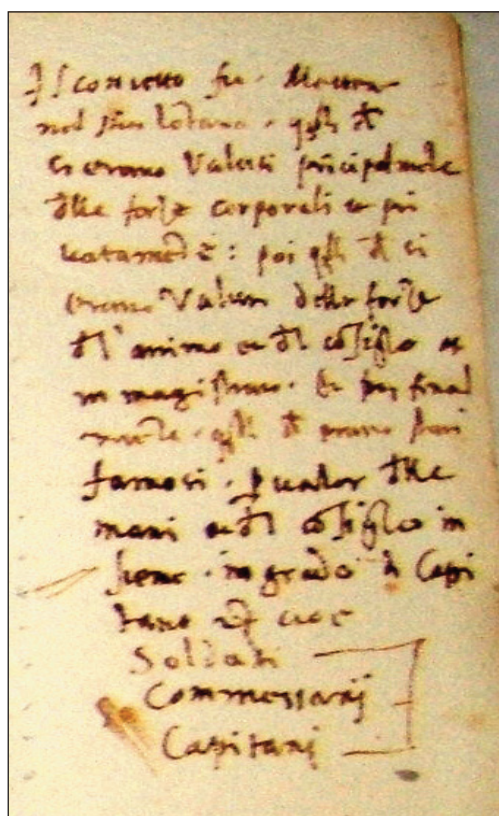 concetto fu. Metter
nel piu lontano. quelli che
si erano Valuti principalmente
delle forze corporali et pri
vatamente: poi quelli che si
erano Valuti delle forze
del animo et del consiglio et
in magistrato. Et poi final
mente. quelli che erano stati
famosi. per valor delle
mani et del consiglio in
sieme. in grado di Capi
tano et cioe
Soldati
Commessarij
Capitani